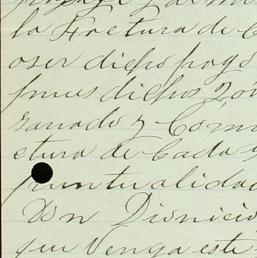 la Fretura de C
oser dicho pago
pues dichos 
ganado y Com
ctura de Cada
puntualidad
Don Dionicio
que Venga este